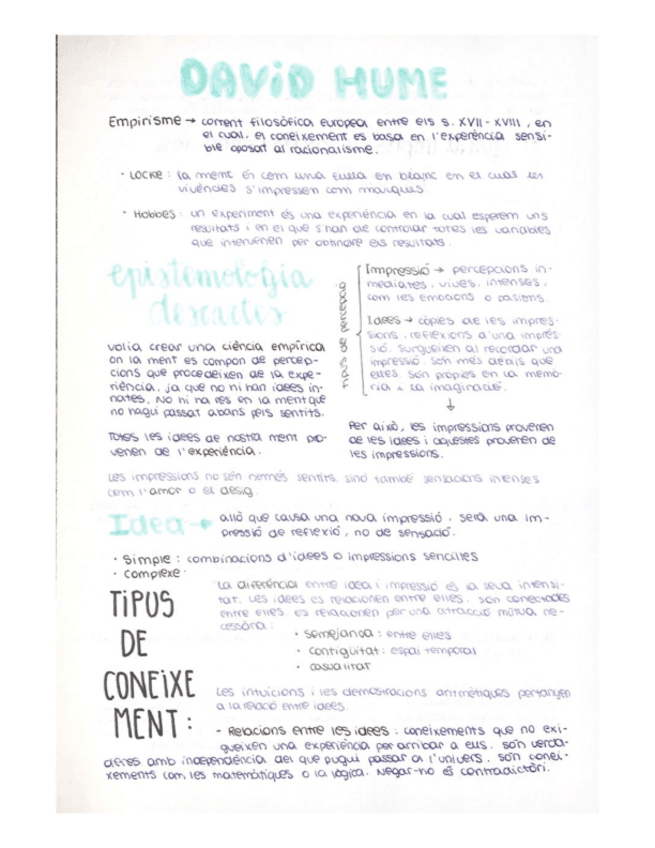 DAVID HUME
Empirisme → corrent filosòfica europea entre els s. XVII - XVIII, en
el cual, el coneixement es basa en l'experiència sensi-
ble oposat al racionalisme.
· LOCKE: la ment és com una fulla en blanc en el cual les
vivències s'impressen com marques
· Hobbes: un experiment és una experiència en la cual esperem uns
resultats i en el que s'han de controlar totes les variables
que intervenen per obtindre els resultats.
epistemologia
descartes
volia crear una ciència empírica
on la ment es compon de percep-
cions que procedeixen de la expe-
riència, ja que no hi han idees in-
nates. No hi ha res en la ment que
no hagui passat abans pels sentits.
Totes les idees de nostra ment pro-
venen de l'experiència.
tipus de percepció
Impressió → percepcions in-
mediates, vives, intenses,
com les emocions o pasions.
Idees → còpies de les impres-
sions, reflexions d'una impres-
sió. Surgueixen al recordar una
impressió. Són més dèbils que
elles. Són pròpies en la memò-
ria i la imaginació.
↓
Per això, les impressions provenen
de les idees i aquestes provenen de
les impressions.
Les impressions no són només sentits, sinó també sensacions intenses
com l'amor o el desig.
Idea → allò que causa una nova impressió, serà una im-
pressió de reflexió, no de sensació.
· Simple: combinacions d'idees o impressions sencilles
· Complexe:
TIPUS
DE
CONEIXE
MENT:
La diferència entre idea i impressió és la seva intensi-
tat. Les idees es relacionen entre elles, són conectades
entre elles, es relacionen per una atracció mútua ne-
cessària:
· semejança: entre elles
· contigüitat: espai temporal
· casualitat
Les intuïcions i les demostracions aritmètiques pertanyen
a la relació entre idees.
- Relacions entre les idees: coneixements que no exi-
gueixen una experiència per arribar a ells, són verda-
deres amb independència del que pugui passar a l'univers. són conei-
xements com les matemàtiques o la lògica. Negar-ho és contradictòri.